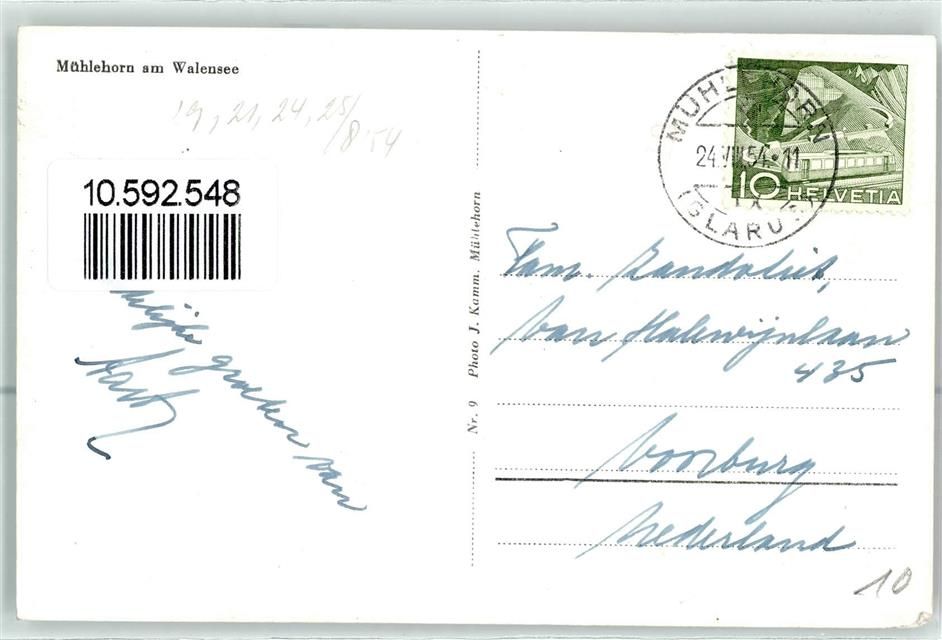 Mühlehorn am Walensee
19, 21, 24, 25/
/8 54
10.592.548
groeten van
Nr. 9 Photo J. Kamm. Mühlehorn
MÜHLEHORN
24.VIII.54.-11
(GLARUS)
10 HELVETIA
Fam. Zandvliet,
Van Halewijnlaan
435
Voorburg
Nederland
10